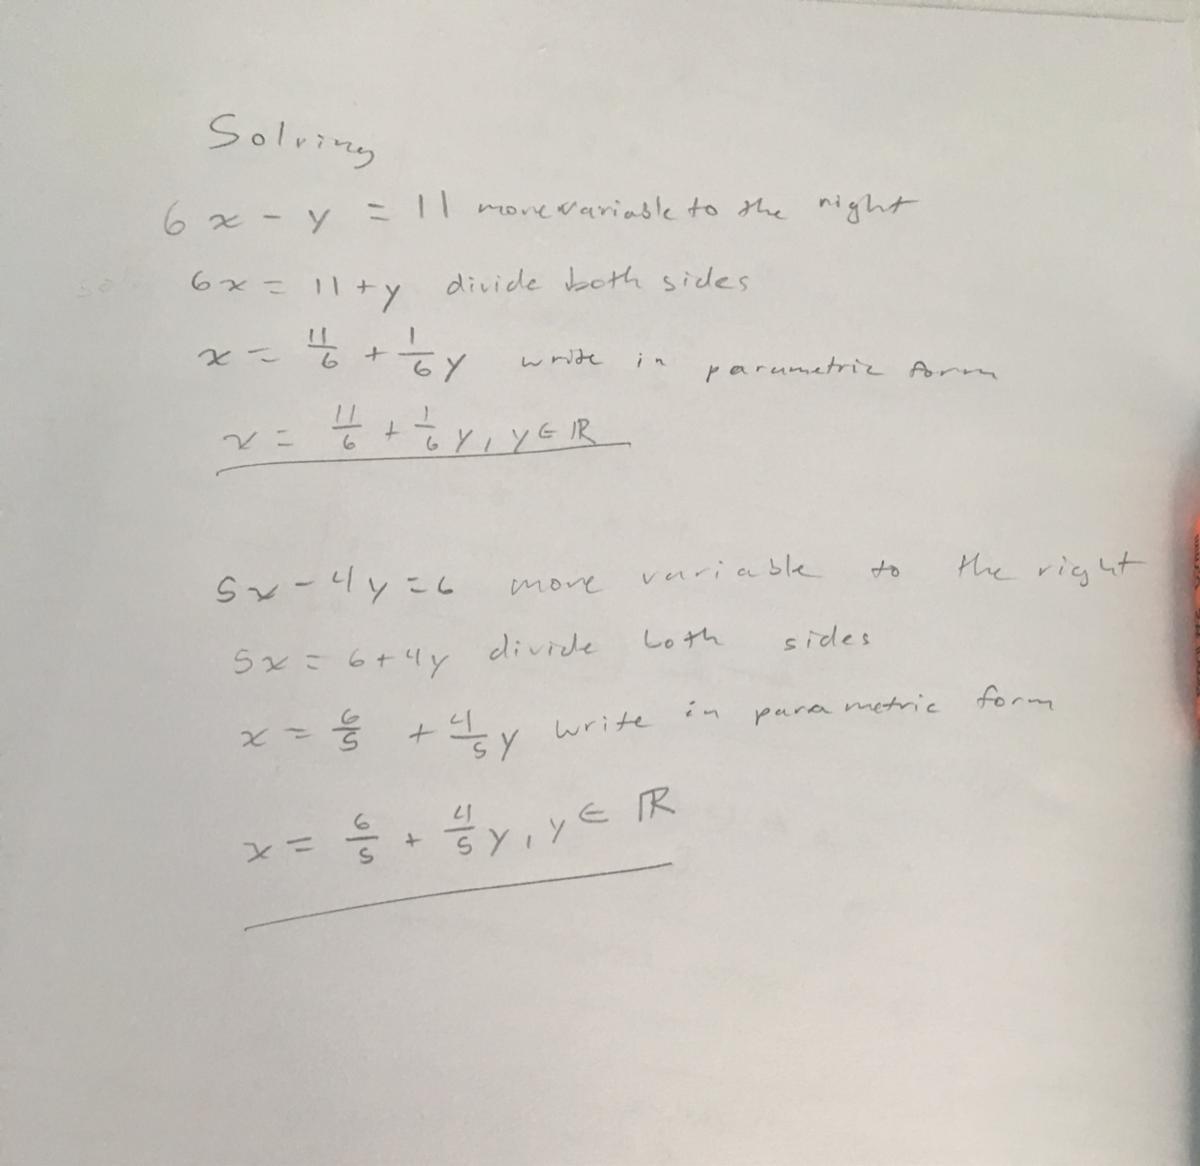 Solving
6x - y = 11 move variable to the right
6x = 11 + y divide both sides
x = 11/6 + 1/6 y write in parametric form
x = 11/6 + 1/6 y, y ∈ ℝ
5x - 4y = 6 move variable to the right
5x = 6 + 4y divide both sides
x = 6/5 + 4/5 y write in parametric form
x = 6/5 + 4/5 y, y ∈ ℝ